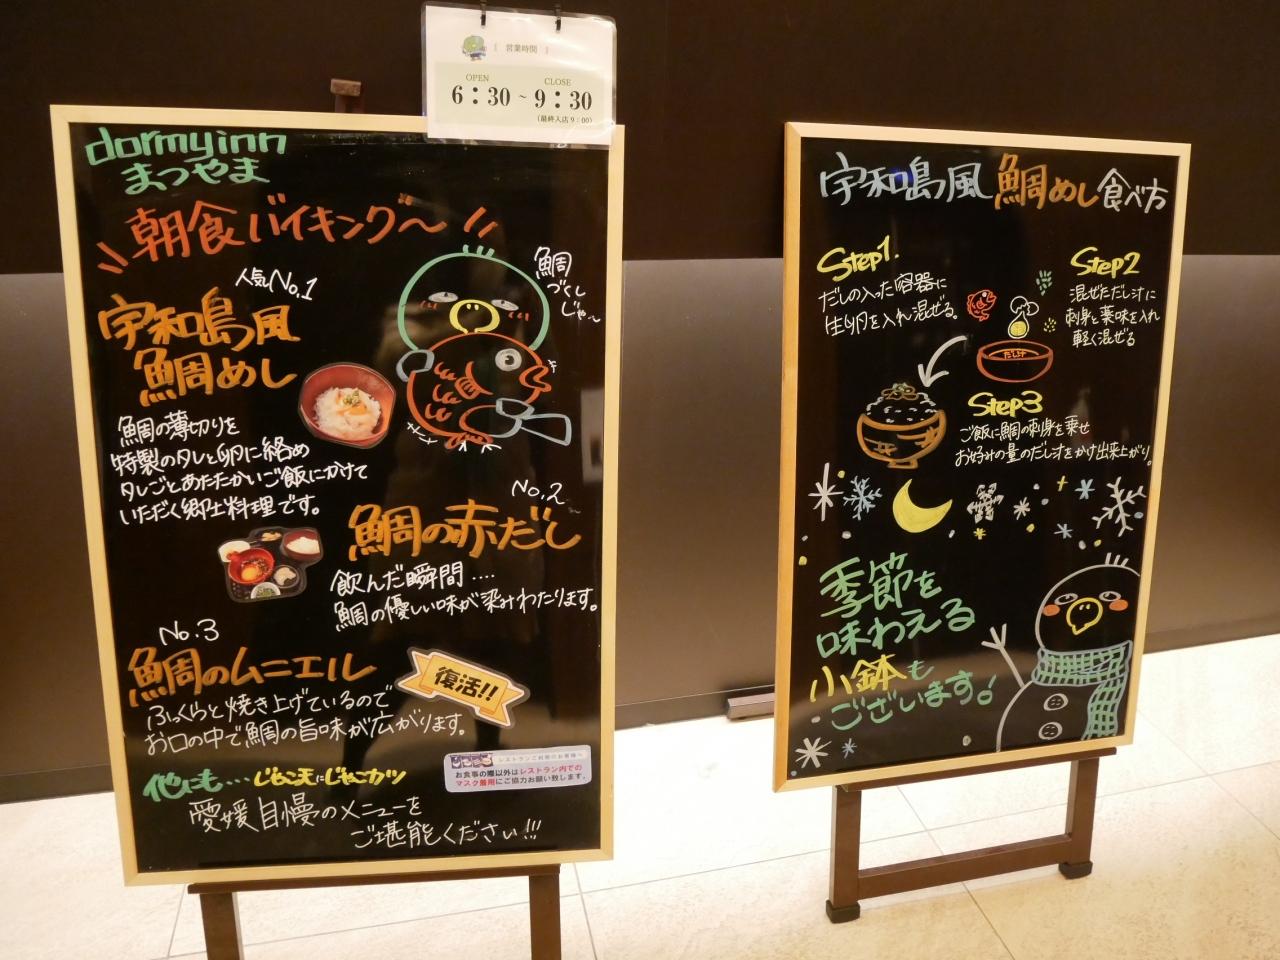 〖 営業時間 〗
OPEN CLOSE
6：30～9：30
（最終入店9：00）
dormyinn
まつやま
朝食バイキング〜
人気No.1
宇和島風
鯛めし
鯛
づくし
じゃ〜
鯛の薄切りを
特製のタレと卵に絡め
タレごとあたたかいご飯にかけて
いただく郷土料理です。
No.2
鯛の赤だし
飲んだ瞬間‥‥
鯛の優しい味が染みわたります。
No.3
鯛のムニエル
復活!!
ふっくらと焼き上げているので
お口の中で鯛の旨味が広がります。
レストランご利用のお客様へ
お食事の際以外はレストラン内での
マスク着用にご協力お願い致します。
他にも…じゃこ天にじゃこカツ
愛媛自慢のメニューを
ご堪能ください!!!
宇和島風鯛めし食べ方
Step1.
だしの入った容器に
生卵を入れ混ぜる。
Step2
混ぜただし汁に
刺身と薬味を入れ
軽く混ぜる
だし汁
Step3
ご飯に鯛の刺身を乗せ
お好みの量のだし汁をかけ出来上がり。
季節を
味わえる
小鉢も
ございます!